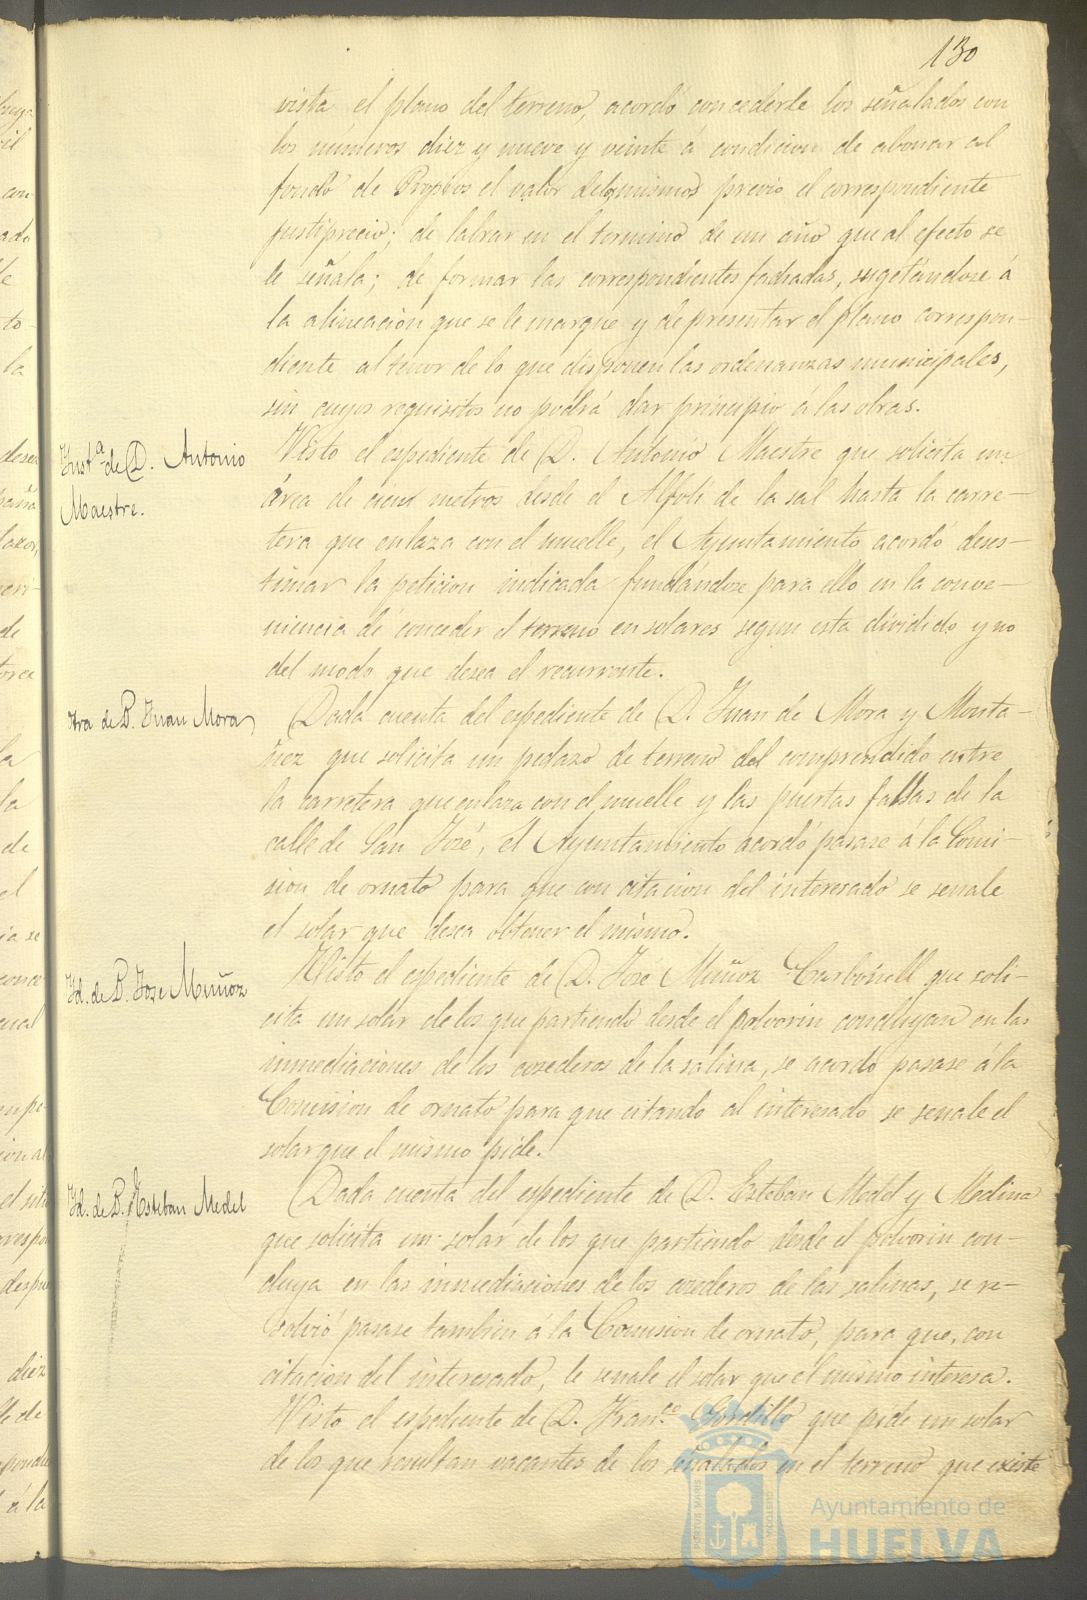 130
vista el plano del terreno, acordó concederle los señalados con
los números diez y nueve y veinte á condicion de abonar al
fondo de Propios el valor de los mismos previo el correspondiente
justiprecio; de labrar en el termino de un año que al efecto se
le señala; de formar las correspondientes fachadas, sugetándose á
la alineacion que se le marque y de presentar el plano correspon-
diente al tenor de lo que disponen las ordenanzas municipales,
sin cuyos requisitos no podrá dar principio á las obras.
Inst.ª de D. Antonio
Maestre.
Visto el espediente de D. Antonio Maestre que solicita un
área de cien metros desde el Alfolí de la sal hasta la carre-
tera que enlaza con el muelle, el Ayuntamiento acordó deses-
timar la peticion indicada fundándose para ello en la conve-
niencia de conceder el terreno en solares segun esta dividido y no
del modo que desea el recurrente.
Otra de D. Juan Mora
Dada cuenta del espediente de D. Juan de Mora y Monta-
ñez que solicita un pedazo de terreno del comprendido entre
la carretera que enlaza con el muelle y las puertas falsas de la
calle de San José, el Ayuntamiento acordó pasase á la Comi-
sion de ornato para que con citacion del interesado se senale
el solar que desea obtener el mismo.
Id. de D. Jose Muñoz
Visto el espediente de D. José Muñoz Carbonell que soli-
cita un solar de los que partiendo desde el polvorin concluyan en las
inmediaciones de los cocederos de la salina, se acordó pasase á la
Comision de ornato para que citando al interesado se senale el
solar que el mismo pide.
Id. de D. Esteban Medel
Dada cuenta del espediente de D. Esteban Medel y Medina
que solicita un solar de los que partiendo desde el polvorin con-
cluya en las inmediaciones de los cocederos de las salinas, se re-
solvió pasase tambien á la Comision de ornato, para que, con
citacion del interesado, le senale el solar que el mismo interesa.
Visto el espediente de D. Fran.co Gordillo que pide un solar
de los que resultan vacantes de los señalados en el terreno que existe
Ayuntamiento de
HUELVA